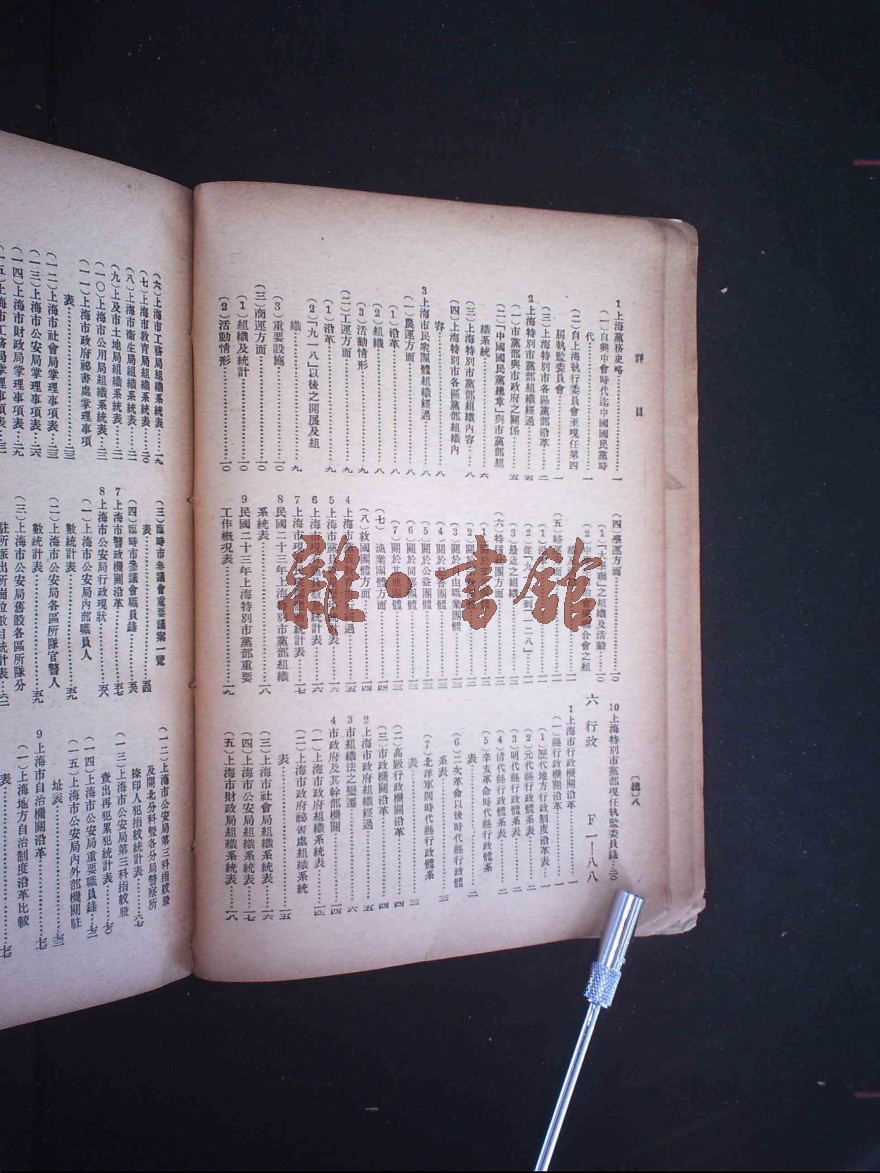 詳目
1上海黨務史略……一
(一)自興中會時代迄中國國民黨時
代……一
(二)自上海執行委員會至現任第四
屆執監委員會……一
(三)上海特別市各區黨部沿革……二
2上海特別市黨部組織經過……五
(一)市黨部與市政府之關係……五
(二)「中國國民黨總章」與市黨部組
織系統……六
(三)上海特別市黨部組織內容……八
(四)上海特別市各區黨部組織內
容……八
3上海市民衆團體組織經過……八
(一)農運方面……八
(1)沿革……八
(2)組織……八
(3)活動情形……九
(二)工運方面……九
(1)沿革……九
(2)「九一八」以後之開展及組
織……九
(3)重要設施……一〇
(三)商運方面……一〇
(1)組織及統計……一〇
(2)活動情形……一〇
(四)學運方面……一〇
(1)「大學聯」之組織及活動……一〇
(3)最近之組織
(六)特種社運方面
(3)關於自由職業團體
(5)關於公益團體
(6)關於同鄉團體
(7)關於其他團體
(七)漁業團體方面……一四
(八)救國團體方面……一四
8民國二十三年上海特別市黨部組織
系統表……一八
9民國二十三年上海特別市黨部重要
工作概況表……一九
10上海特別市黨部現任執監委員錄……二〇
六 行政 F一—八八
1上海市行政機關沿革……一
(一)縣行政機關沿革……一
(1)歷代地方行政制度沿革表……一
(2)元代縣行政體系表……二
(3)明代縣行政體系表……二
(4)清代縣行政體系表……二
(5)辛亥革命時代縣行政體系
表……二
(6)二次革命以後時代縣行政體
系表……三
(7)北洋軍閥時代縣行政體系表……三
(二)高級行政機關沿革……四
(三)市政機關沿革……四
2上海市政府組織經過……五
3市組織法之變遷……六
4市政府及其幹部機關……一四
(一)上海市政府組織系統表……一四
(二)上海市政府祕書處組織系統
表……一五
(三)上海市社會局組織系統表……一六
(四)上海市公安局組織系統表……一七
(五)上海市財政局組織系統表……一八
〔總〕八
(六)上海市工務局組織系統表……一九
(七)上海市教育局組織系統表……二〇
(八)上海市衛生局組織系統表……二一
(九)上海市土地局組織系統表……二一
(一〇)上海市公用局組織系統表……二二
(一一)上海市政府祕書處掌理事項
表……二三
(一二)上海市社會局掌理事項表……二三
(一三)上海市公安局掌理事項表……二六
(一四)上海市財政局掌理事項表……二九
(一五)上海市工務局掌理事項表……三一
(三)臨時市參議會重要議案一覽
表……五四
(四)臨時市參議會職員錄……五六
7上海市警政機關沿革……五七
8上海市公安局行政現狀……五八
(一)上海市公安局內部職員人
數統計表……五九
(二)上海市公安局各區所隊官警人
數統計表……五九
(三)上海市公安局舊設各區所隊分
駐所派出所崗位數目統計表……六二
(一二)上海市公安局第三科指紋股
及閘北分科暨各分局警察所
捺印人犯指紋統計表……六七
(一三)上海市公安局第三科指紋股
查出再犯累犯統計表……七〇
(一四)上海市公安局重要職員錄……七二
(一五)上海市公安局內外部機關駐
址表……七三
9上海市自治機關沿革……七七
(一)上海地方自治制度沿革比較
表……七七
雜·書館